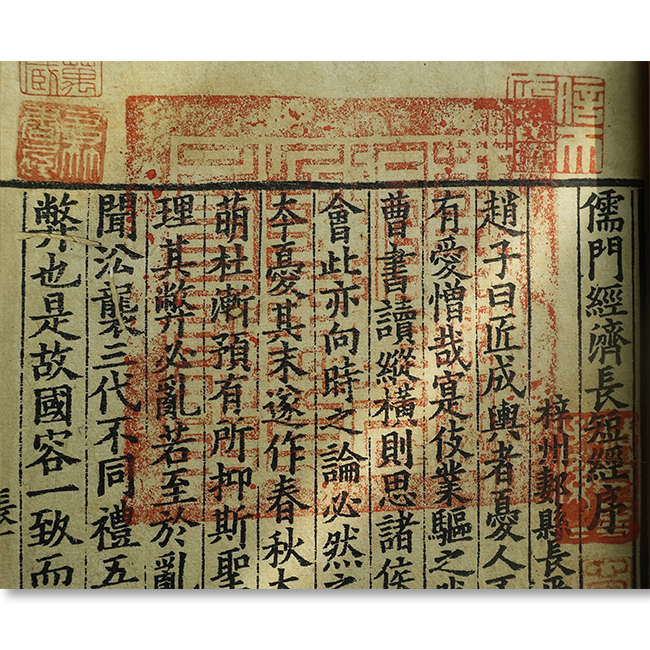 儒門經濟長短經序
梓州郪縣長
趙子曰匠成輿者憂人
有愛憎哉寔伎業驅之
曹書讀縱橫則思諸侯
會此亦向時之論必然之
夲憂其末遂作春秋大
萌杜漸預有所抑斯聖
理其弊必亂若至於亂
聞沿襲三代不同禮五
弊也是故國容一致而
長一